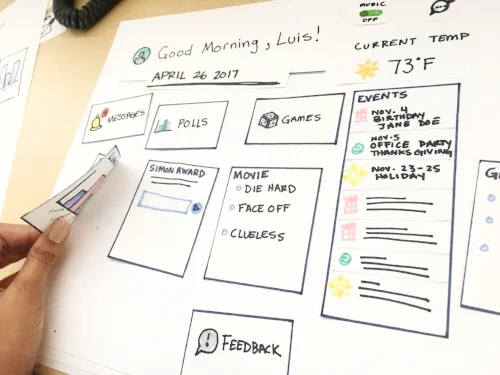 MUSIC
OFF
Good Morning, Luis!
APRIL 26 2017
CURRENT TEMP
73°F
MESSAGES
POLLS
GAMES
EVENTS
NOV. 4
BIRTHDAY
JANE DOE
NOV. 5
OFFICE PARTY
THANKSGIVING
NOV. 23-25
HOLIDAY
SIMON AWARD
MOVIE
DIE HARD
FACE OFF
CLUELESS
FEEDBACK